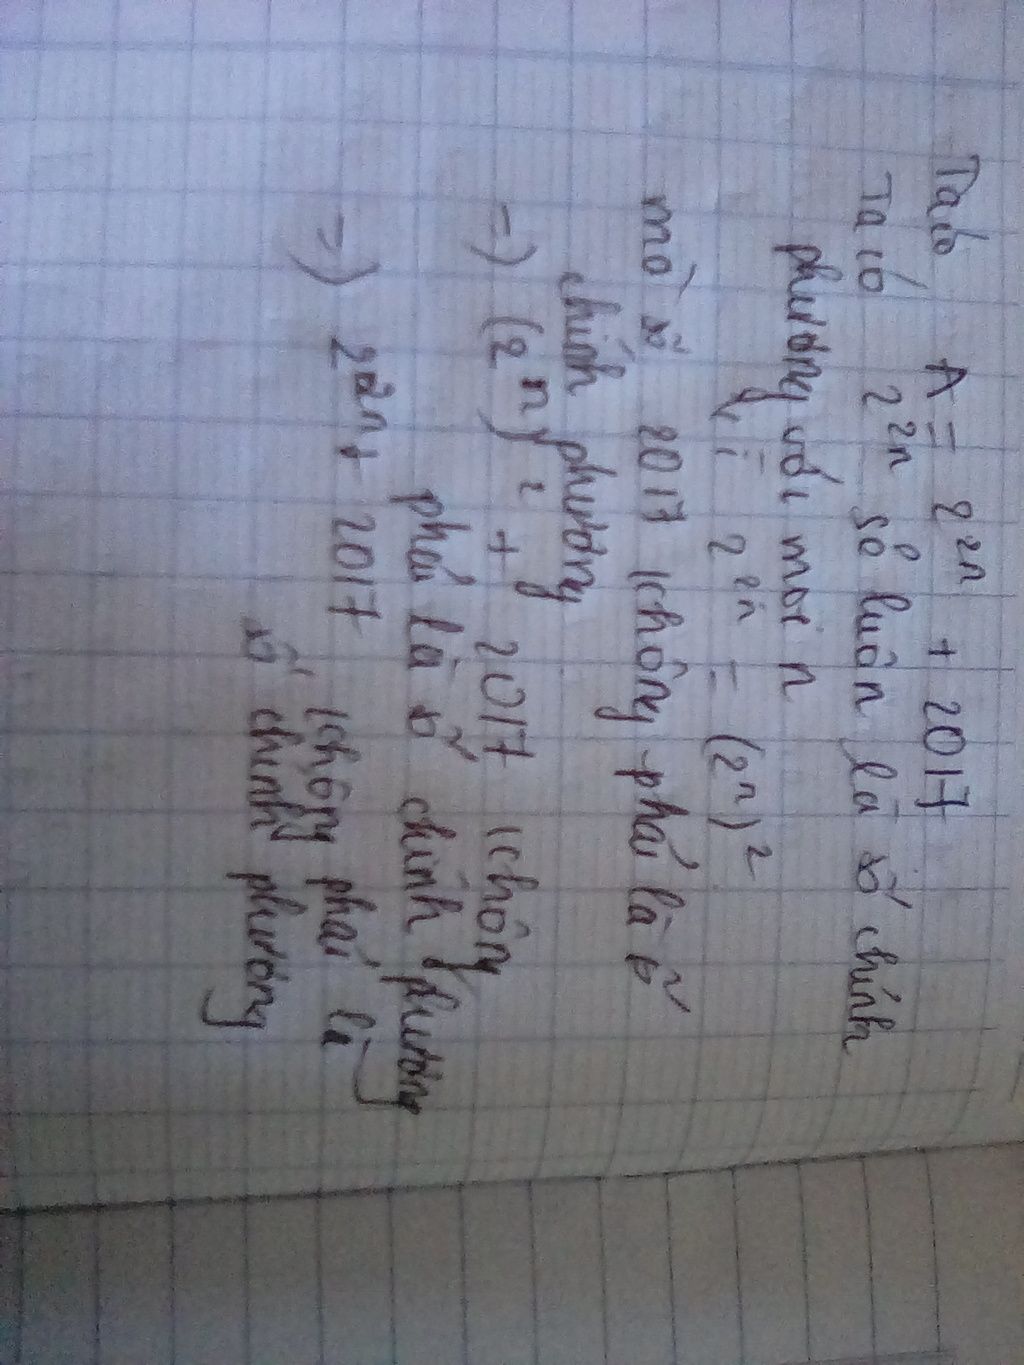 Ta có A = 2²ⁿ + 2017
Ta có 2²ⁿ số luôn là số chính
phương với mọi n
Vì 2²ⁿ = (2ⁿ)²
mà số 2017 không phải là số
chính phương
=) (2ⁿ)² + 2017 không
phải là số chính phương
=) 2²ⁿ + 2017 không phải là
số chính phương